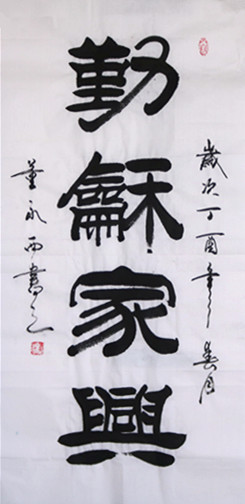 歲次丁酉年春月
勤龢家興
董永西書之